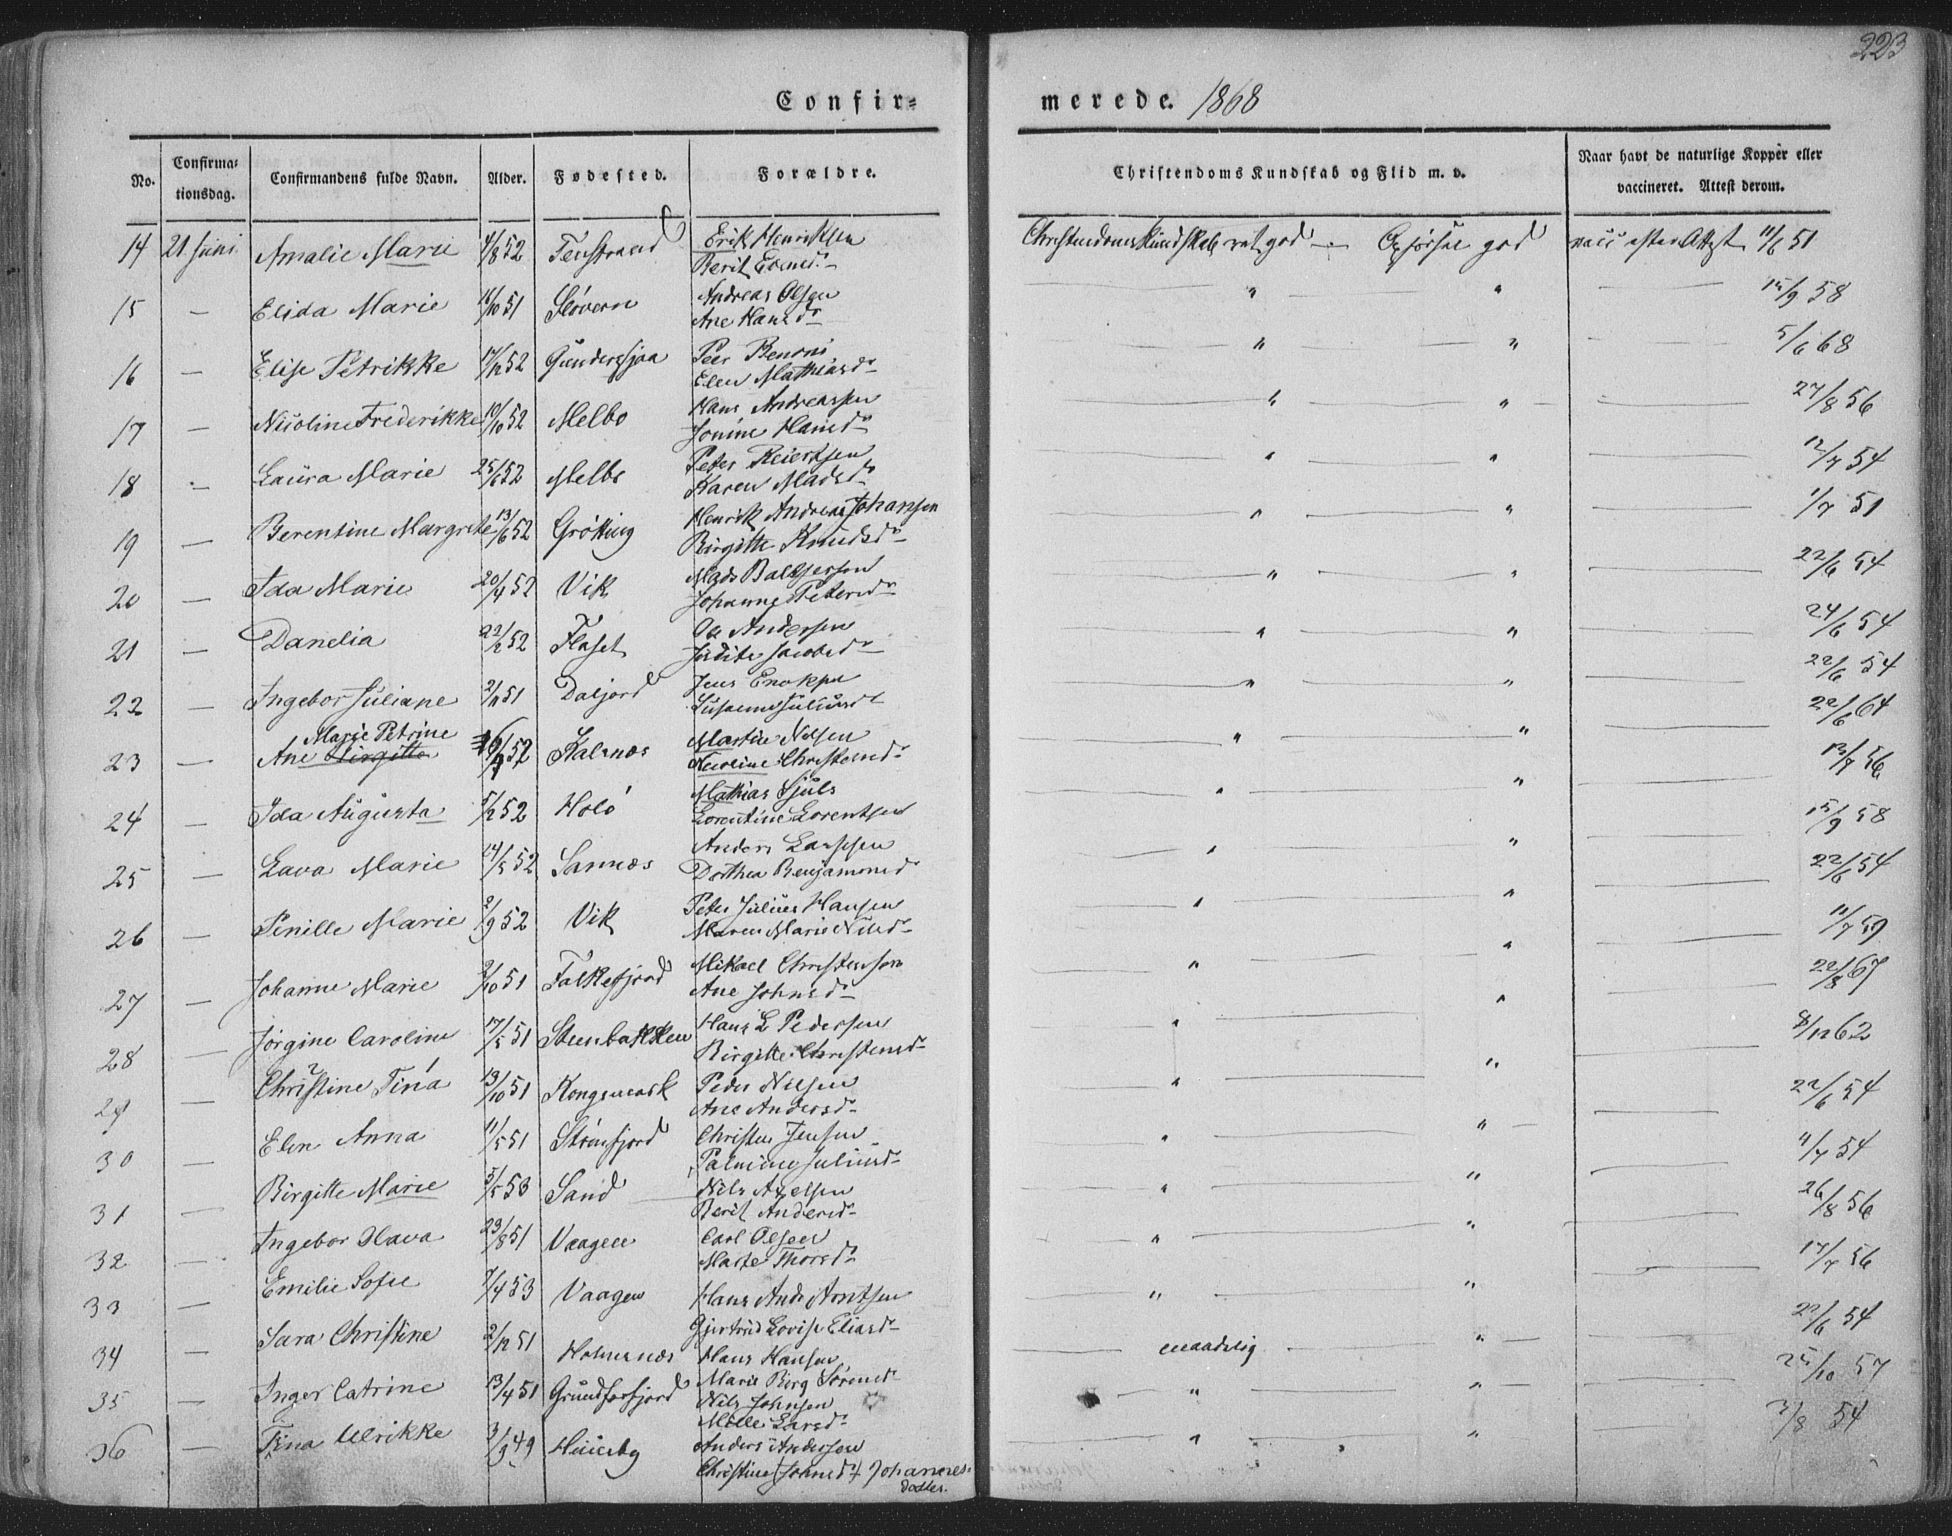 223
Confir=
merede. 1868
No.
Confirma=
tionsdag.
Confirmandens fulde Navn.
Alder.
Fødested.
Forældre.
Christendoms Kundskab og Flid m. v.
Naar havt de naturlige Kopper eller
vaccineret. Attest derom.
14 21 Juni Amalie Marie 4/8 52 Erik Henriksen Christendomskundskab ret god — god vacc efter Attest 11/6 51
Berit
15 — Elida Marie 51 Andreas Olsen " " 15/9 58
Ane Hansd
16 — Elise Petrikke 52 Peer Benoni " " 5/6 68
Elen Mathiasd
17 — Nicoline Frederikke 10/10 52 Melbo Hans Andreassen " " 27/8 56
Jonine Hansd
18 — Laura Marie 25/6 52 Melbo Peter Reiertsen " " 12/7 54
Karen Madsd
19 — Berentine Margrete 13/6 52 Grötting Henrik Andreas Johansen " " 1/7 51
Birgitte Knudsd
20 — Ida Marie 20/4 52 Vik Mads Baltzersen " " 22/6 54
Johanne Petersd
21 — Danelia 22/2 52 Flaset Ole Andersen " " 24/6 54
Judite Jacobsd
22 — Ingebor Juliane 2/11 51 Daljord Jens " " 22/6 54
Marie Petrine 22/6 64
23 — Ane Birgitte 52 Kalsnæs Martin Nilsen " " 13/7 56
Nicoline Christensd
24 — Ida Augusta 5/2 52 Holö Mathias Sjuls " " 15/9 58
Lorentine Lorentsen
25 — Lava Marie 14/5 52 Sannæs Anders Larssen " " 22/6 54
Dorthea Benjamensd
26 — Pernille Marie 2/9 52 Vik Peter Julius Hansen " " 11/7 59
Maren Marie Nilsd
27 — Johanne Marie 2/10 51 Falkefjord Mikael Christensen " " 22/8 67
Ane Johnsd
28 — Jörgine Caroline 17/5 51 Steenbakken Hans L Pedersen " " 8/12 62
Birgitte Christensd
29 Christine Tina 13/10 51 Kongsmark Peder Nilsen " " 22/6 54
Ane Andersd
30 — Elen Anna 11/5 51 Strönfjord Christen Jensen " " 11/7 54
Juliusd
31 — Birgitte Marie 5/5 53 Sand Nils Axelsen " " 26/8 56
Berit Andersd
32 — Ingebor Olava 29/8 51 Vaagen Carl Olsen " " 17/7 56
Marte Thorsd
33 — Emilie Sofie 7/4 53 Vaagen Hans And Arntsen " " 22/6 54
Gjertrud Lovise Eliasd
34 — Sara Christine 2/12 51 Holmsnæs Hans Hansen maadelig " 25/10 57
Marie Birg Sörensd
35 — Inger Catrine 13/4 51 Grundforfjord Nils Johnsen " " 3/8 54
Larsd
36 — Tina Ulrikke 3/9 49 Anders Andersen " "
Christine (Johnsd) Johannes
datter.